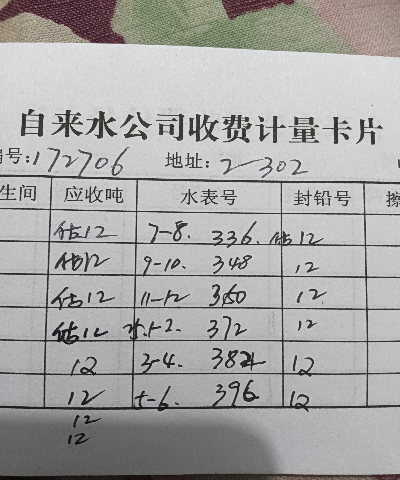 自来水公司收费计量卡片
编号:172706 地址:2-302
生间 应收吨 水表号 封铅号
估12 7-8. 336. 估12
估12 9-10. 348 12
估12 11-12 360 12
估12 1-2. 372 12
12 3-4. 384 12
12 5-6. 396 12
12
12